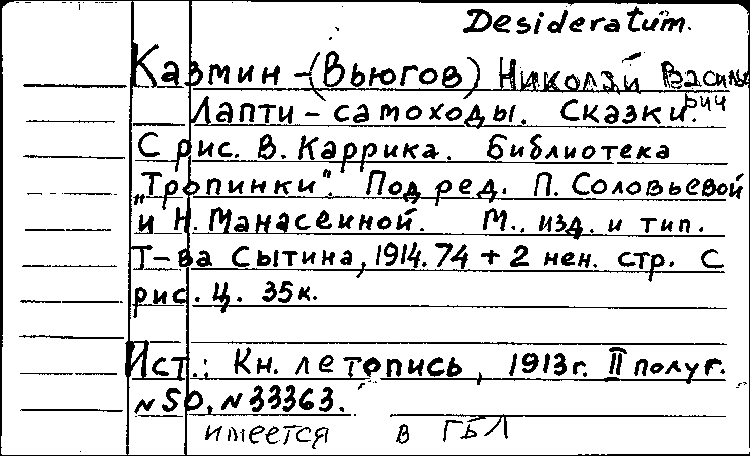 Desideratum.
Казмин-(Вьюгов) Николай Василье
вич
Лапти-самоходы. Сказки.
С рис. В. Каррика. Библиотека
„Тропинки". Под ред. П. Соловьевой
и Н. Манасеиной. М., изд. и тип.
Т-ва Сытина, 1914. 74 + 2 нен. стр. С
рис. Ц. 35к.
Ист.: Кн. летопись, 1913г. II полуг.
№50, №33363.
имеется в ГБЛ